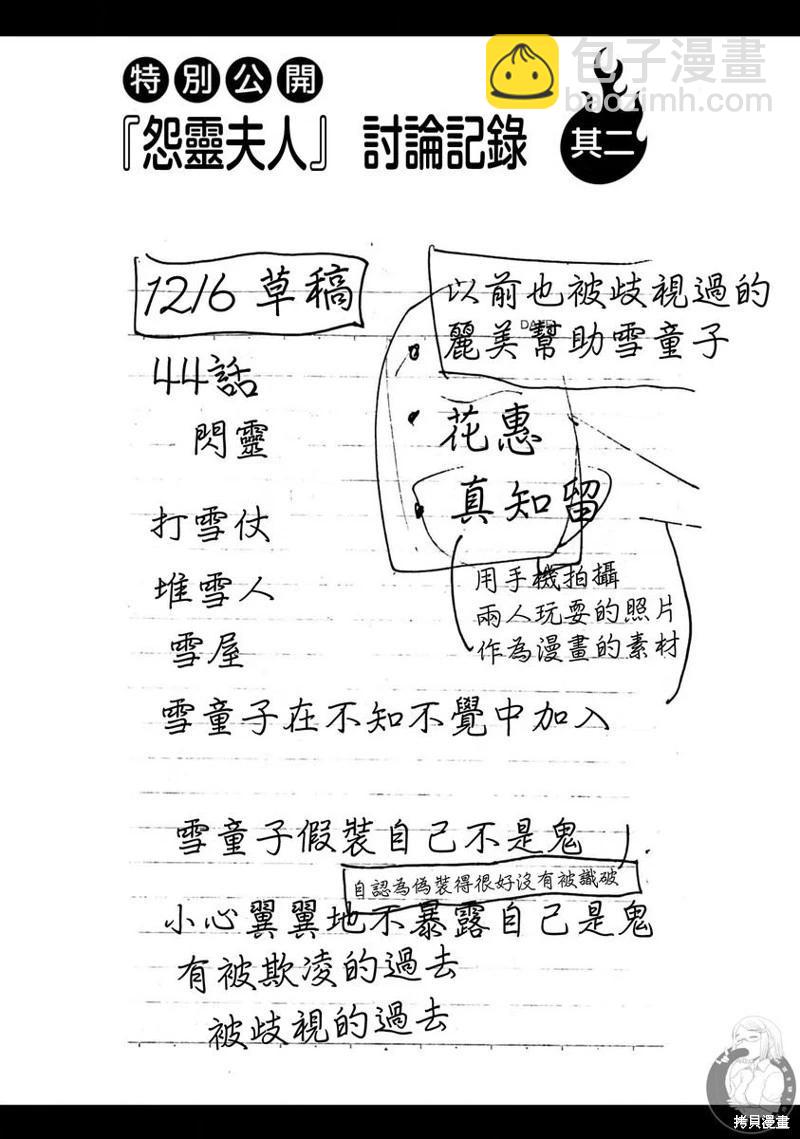 包子漫畫
baozimh.com
特別公開
『怨靈夫人』 討論記錄
其二
12/6 草稿
44話
閃靈
打雪仗
堆雪人
雪屋
雪童子在不知不覺中加入
以前也被歧視過的
麗美幫助雪童子
DATE
花惠
真知留
用手機拍攝
兩人玩耍的照片
作為漫畫的素材
雪童子假裝自己不是鬼
自認為偽裝得很好沒有被識破
小心翼翼地不暴露自己是鬼
有被欺凌的過去
被歧視的過去
拷貝漫畫